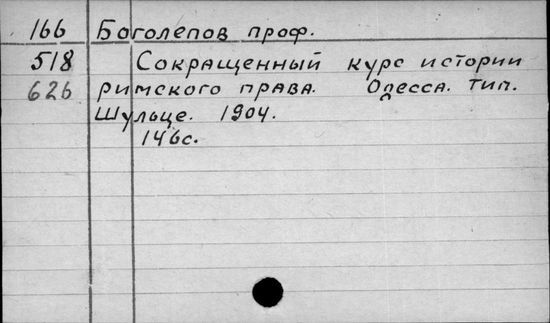 166 Боголепов проф.
518 Сокращенный курс истории
626 римского права. Одесса. Тип.
Шульце. 1904.
146с.